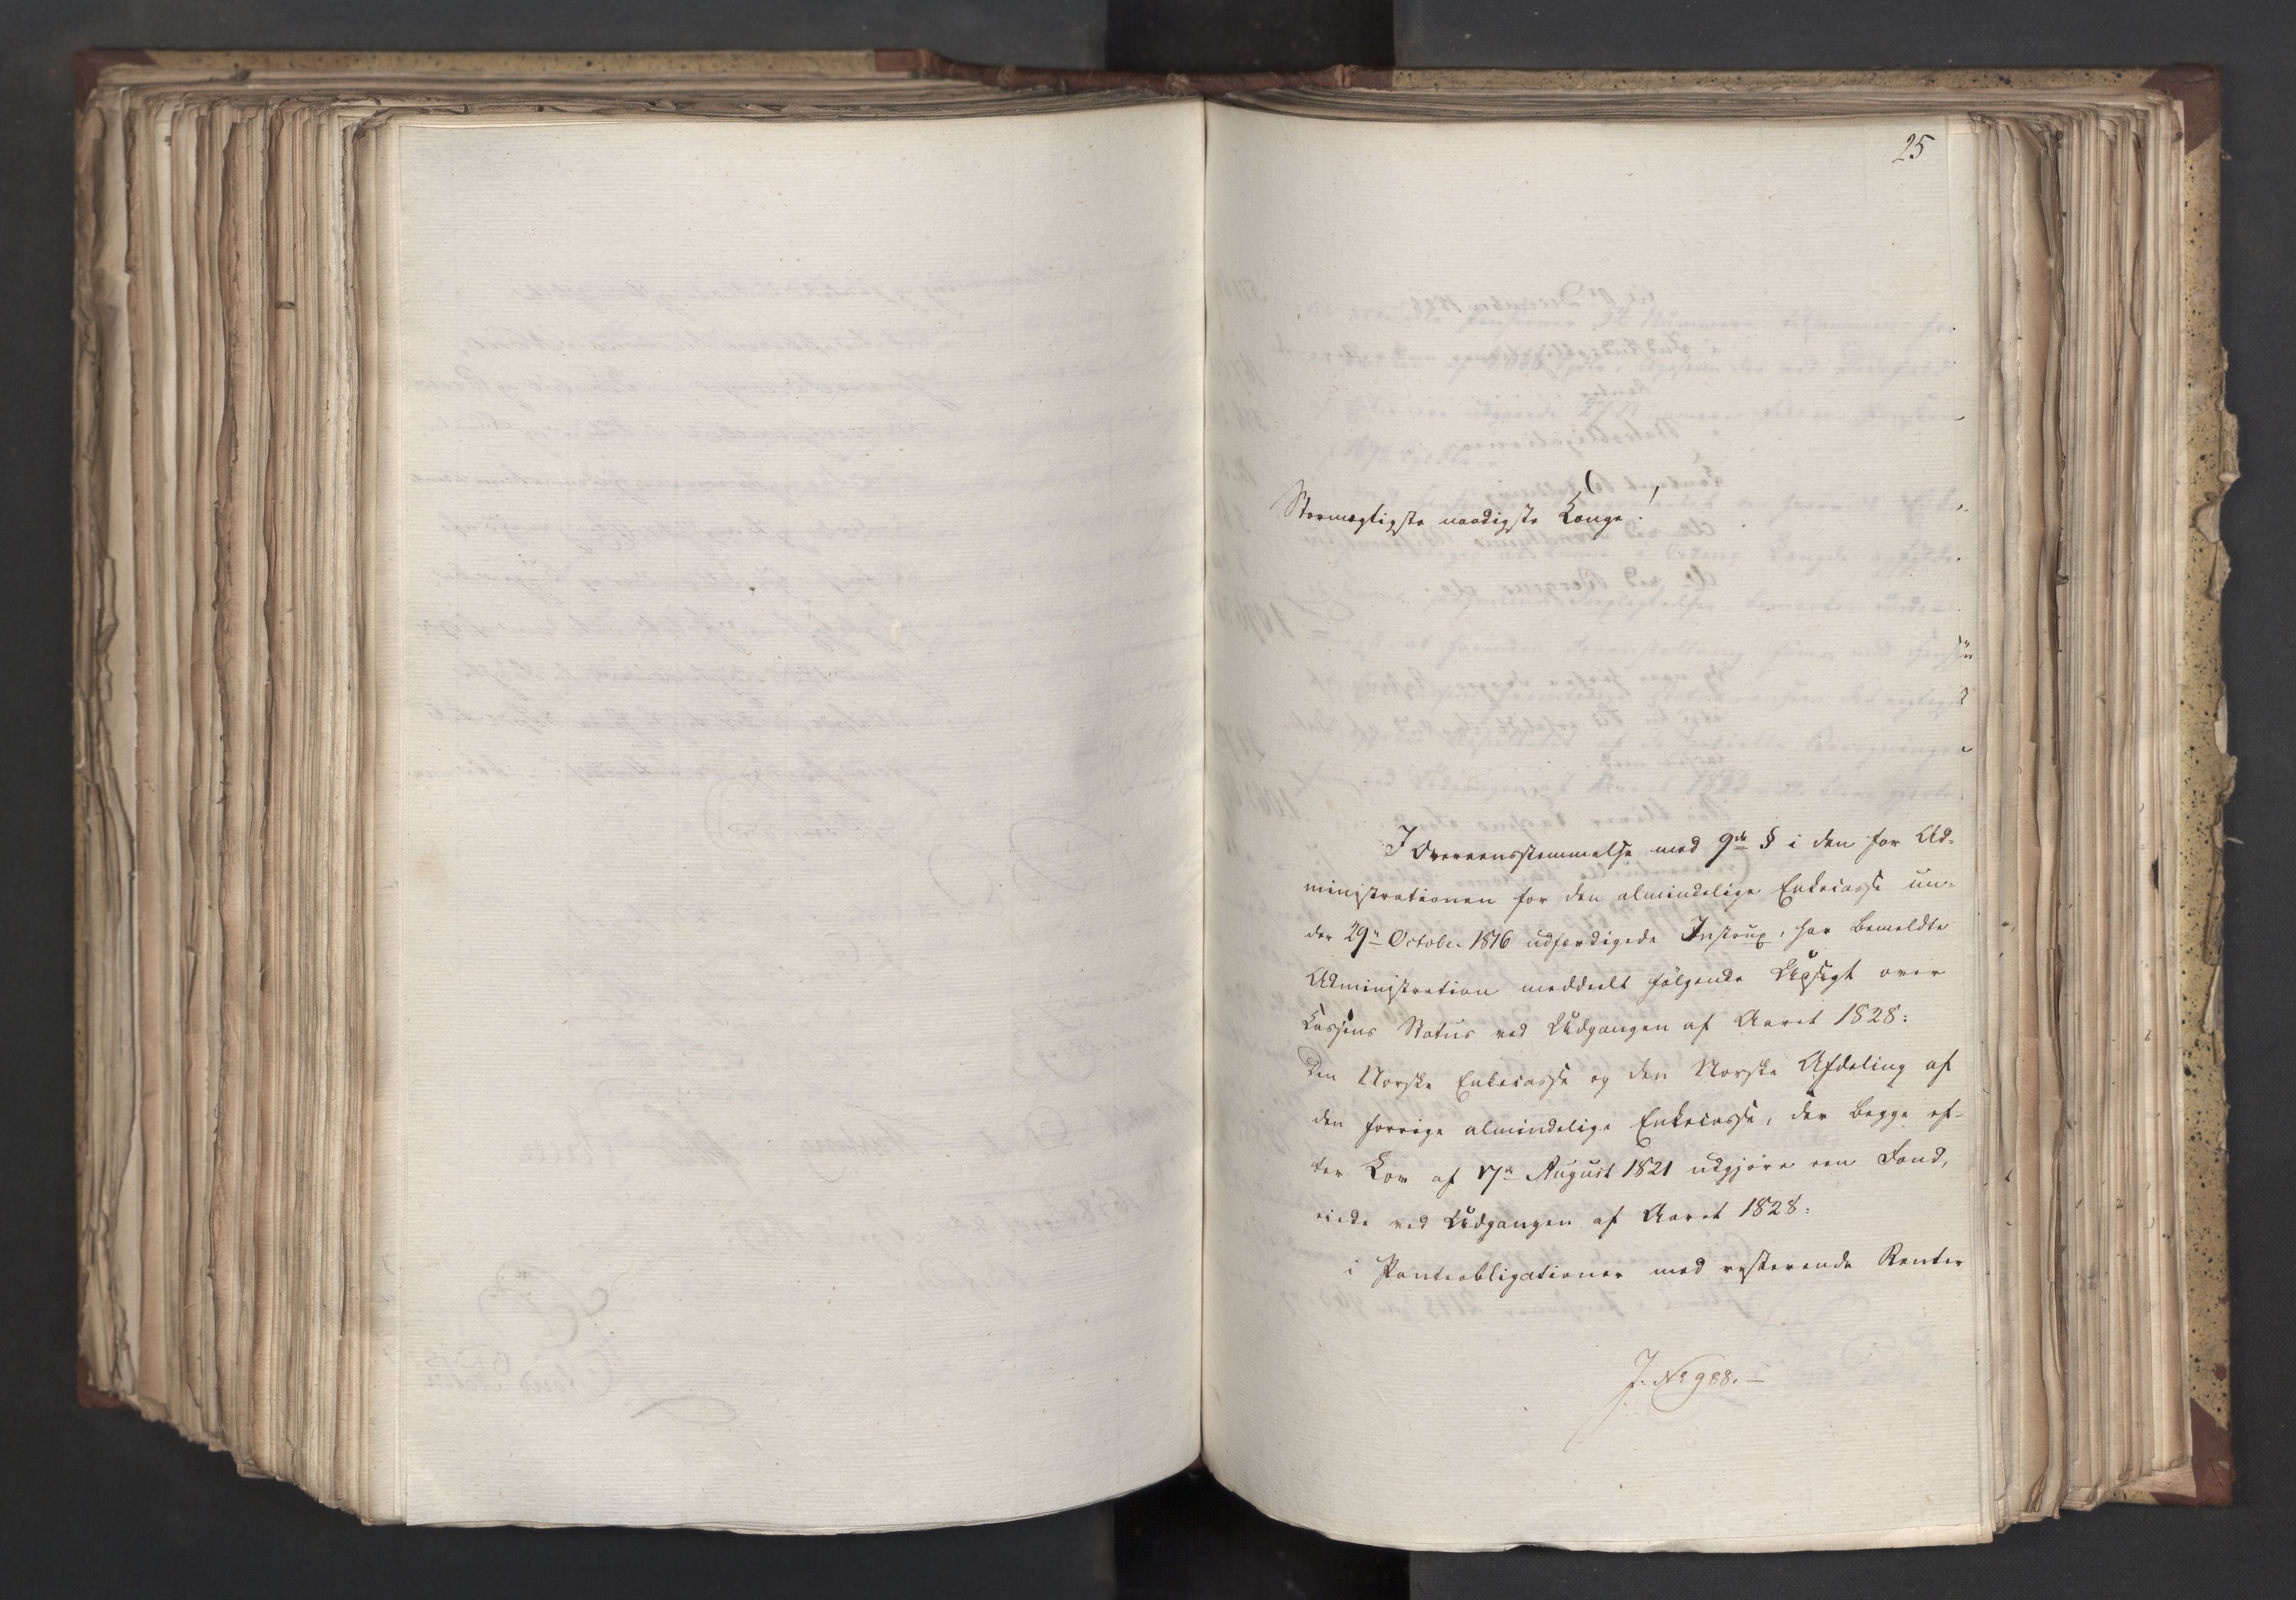 25
Stormægtigste naadigste Konge!
I Overeensstemmelse med 9de § i den for Ad-
ministrationen for den almindelige Enkecasse un-
der 29n October 1816 udfærdigede Instrux, har bemeldte
Administration meddeelt følgende Udsigt over
Kassens Status ved Udgangen af Aaret 1828:
Den Norske Enkecasse og den Norske Afdeling af
den forrige almindelige Enkecasse, der begge ef-
ter Lov af 17n August 1821 udgjøre een Fond,
eiede ved Udgangen af Aaret 1828:
i Panteobligationer med resterende Renter
J. No 988. —